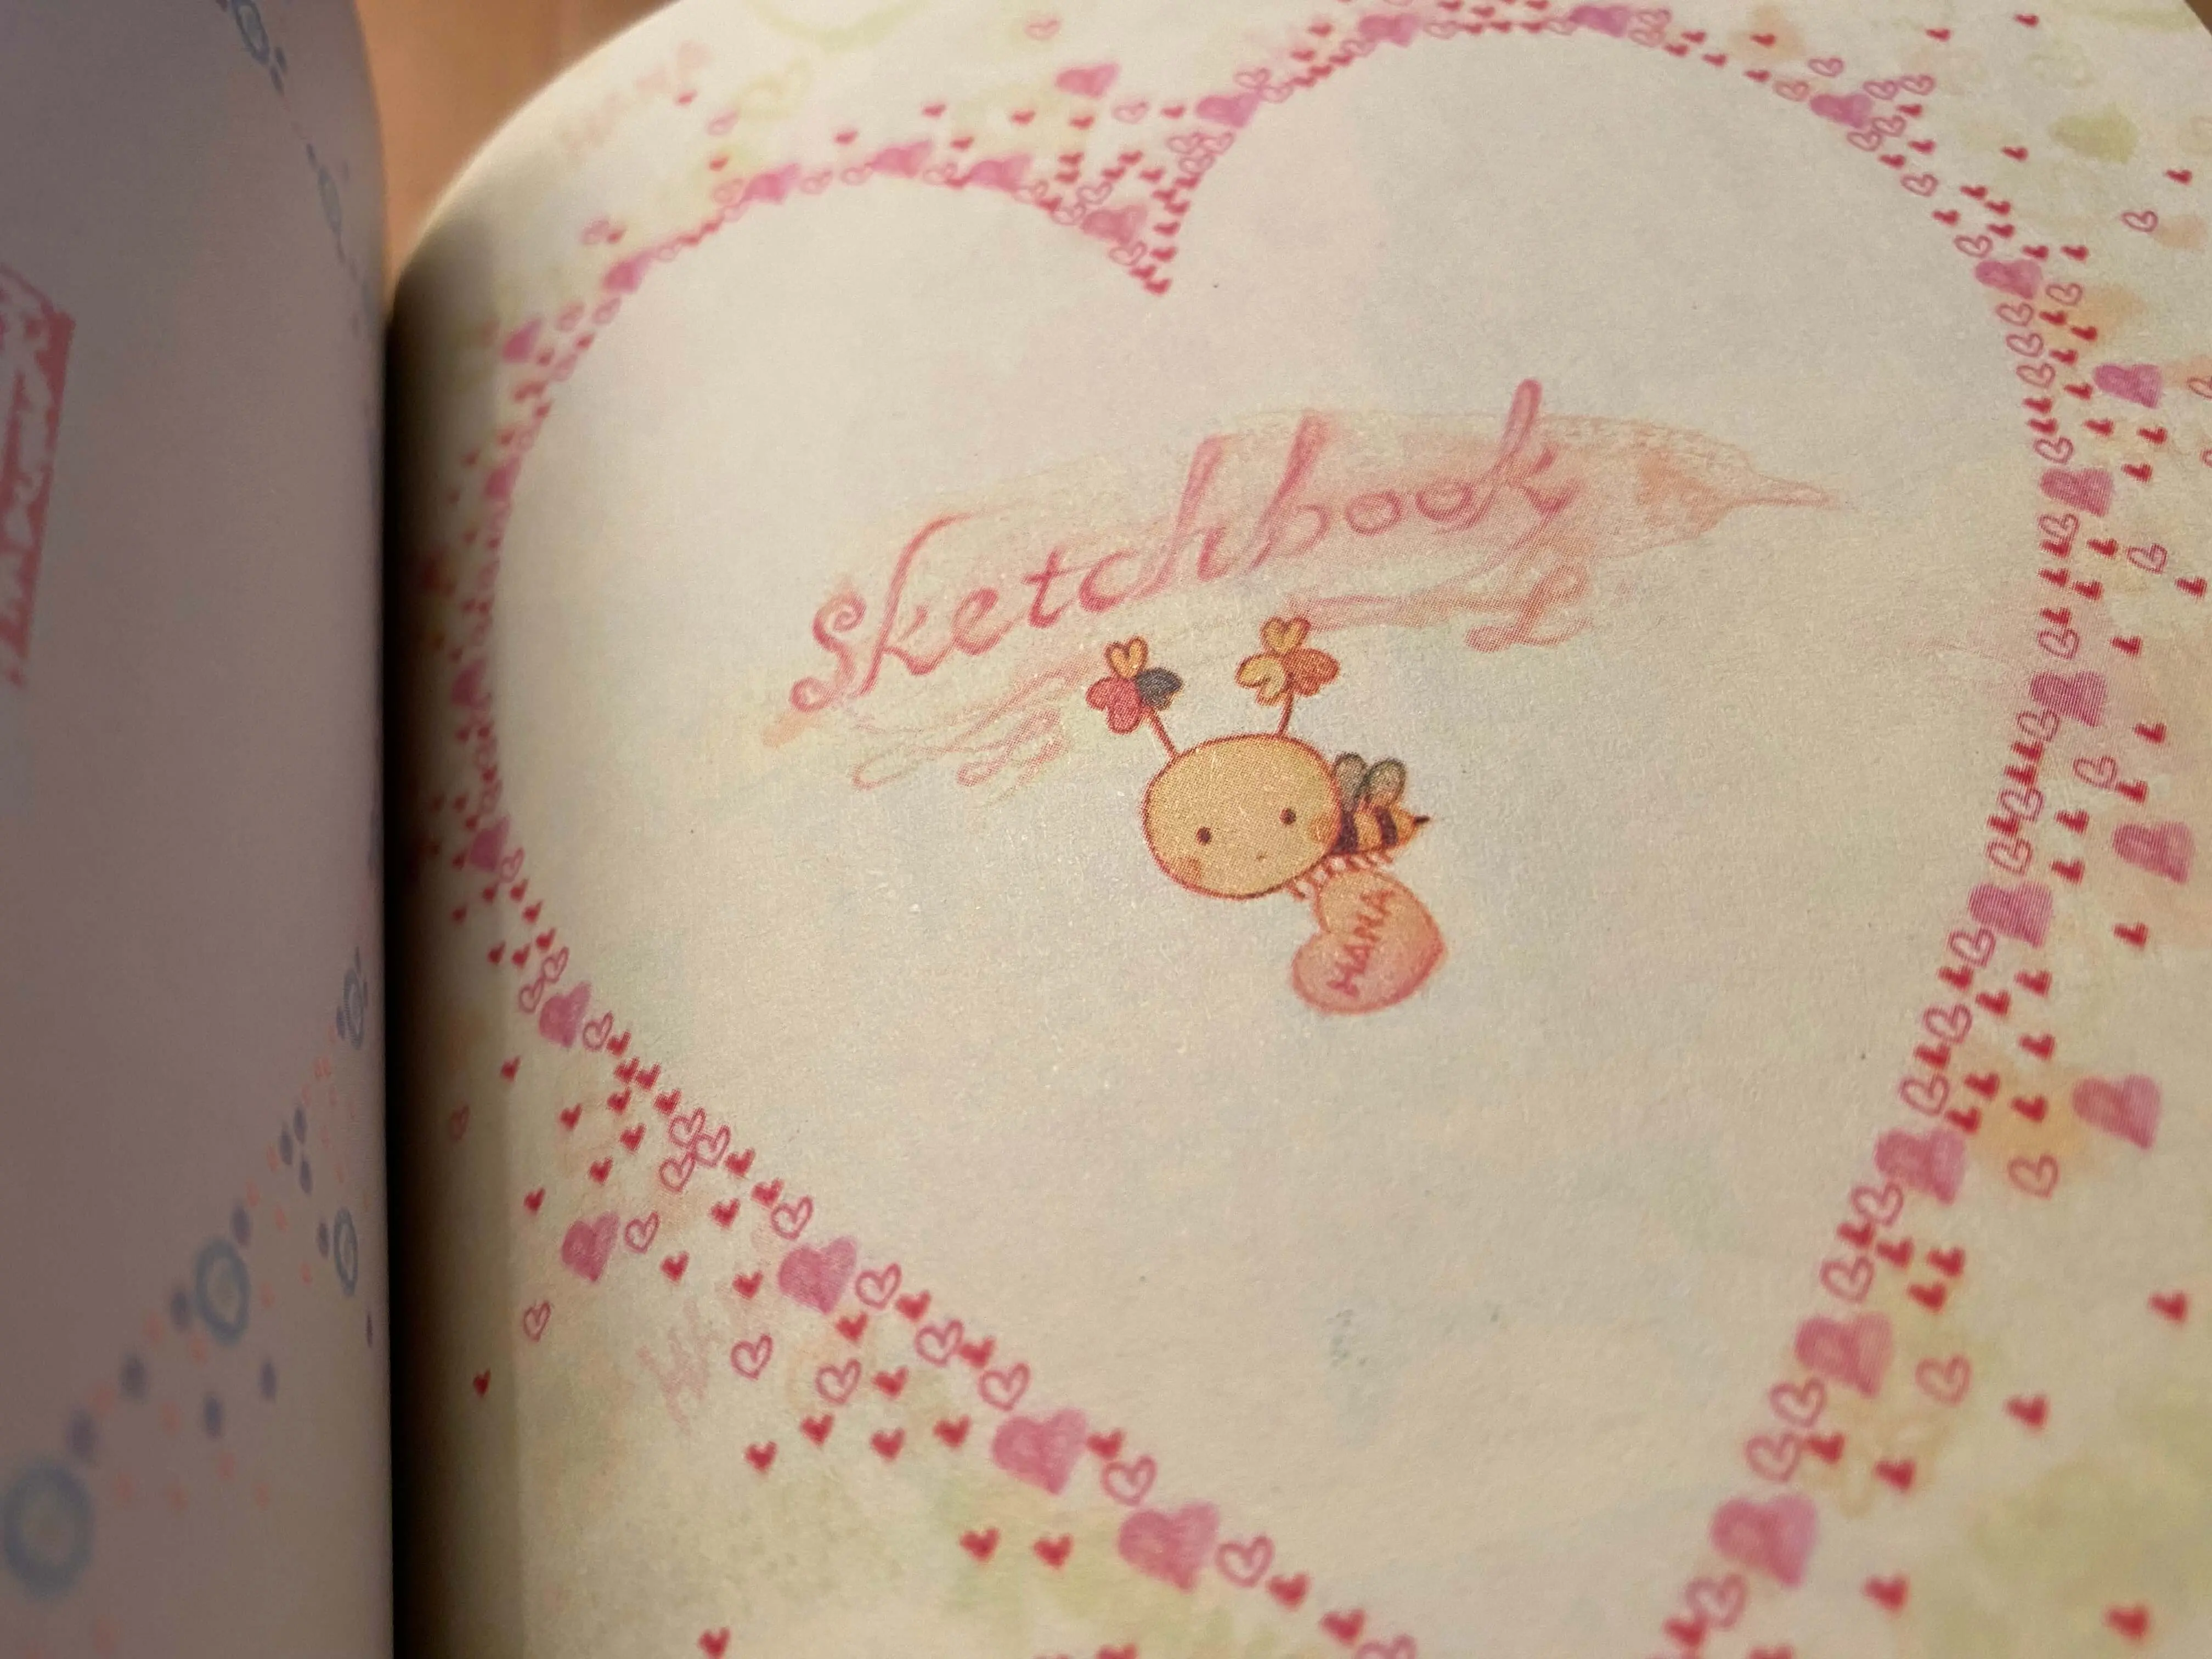 sketchbook
HANA